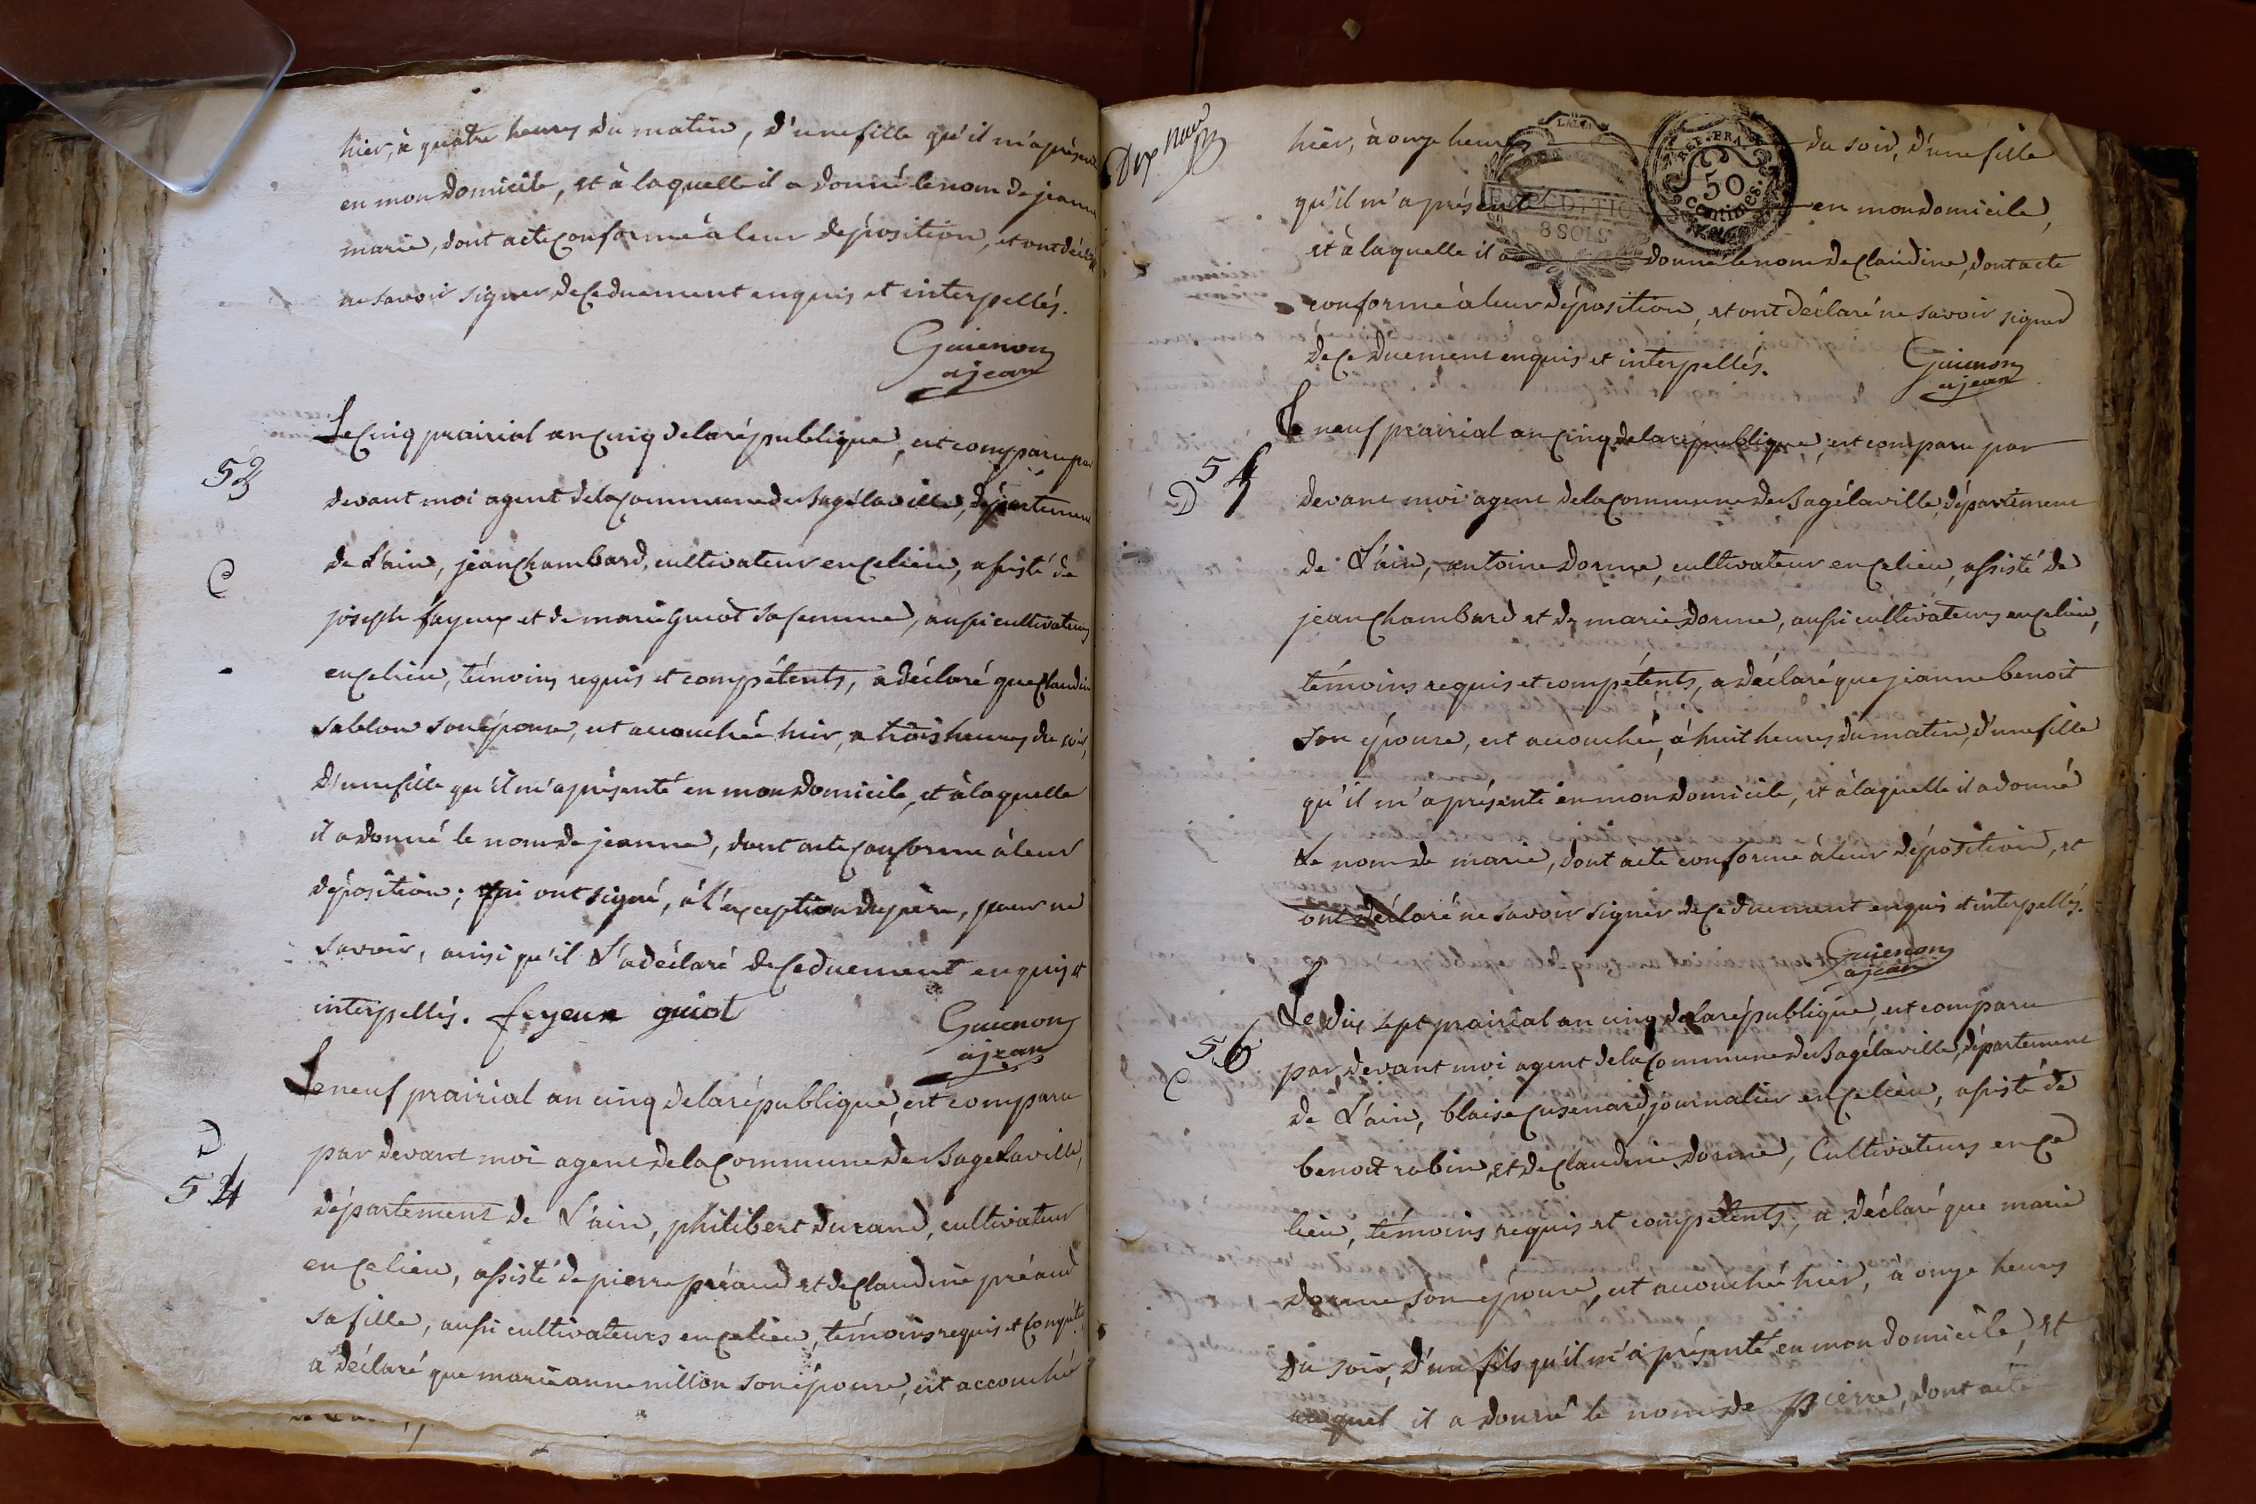 hier, à quatre heures du matin, d'une fille qu'il m'a présen
en mon domicile, et à laquelle il a donné le nom de jeanne
marie, dont acte conforme à leur déposition, et ont déclaré
ne savoir signer de ce duement enquis et interpellés.
Guienon
ajean
53
C
Le cinq prairial an cinq de la république, est comparu par
devant moi agent de la commune de Bagé la ville, département
de L'ain, jean Chambard, cultivateur en ce lieu, assisté de
joseph fayeux et de marie guiot sa femme, aussi cultivateurs
en ce lieu, témoins requis et compétents, a déclaré que Claudine
sablon son épouse, est accouchée hier, a trois heures du soir,
d'une fille qu'il m'a présenté en mon domicile, et à laquelle
il a donné le nom de jeanne, dont acte conforme à leur
déposition; qui ont signé, à l'exception du père, pour ne
savoir, ainsi qu'il L'a déclaré de ce duement enquis et
interpellés. feyeux guiot
Guienon
ajean
D
54
Le neuf prairial an cinq de la république, est comparu
par devant moi agent de la commune de Bagé Laville,
département de L'ain, philibert durand, cultivateur
en ce lieu, assisté de pierre préaud et de Claudine préaud
sa fille, aussi cultivateurs en ce lieu, témoins requis et
a déclaré que marie anne nillon son épouse, est accouchée
Dix neuf
hier, à onze heures du soir, d'une fille
REP. FRA.
50
centimes
EXPEDITIO
8 SOLS
qu'il m'a présenté en mon domicile,
et à laquelle il a donné le nom de Claudine, dont acte
conforme à leur déposition, et ont déclaré ne savoir signer
de ce duement enquis et interpellés.
Guienon
ajean
D
Le neuf prairial an cinq de la république, est comparu par
devant moi agent de la commune de Bagé la ville, département
de L'ain, antoine Dorme, cultivateur en ce lieu, assisté de
jean Chambard et de marie Dorme, aussi cultivateurs en ce lieu,
témoins requis et compétents, a déclaré que jeanne benoit
son épouse, est accouchée, à huit heures du matin, d'une fille
qu'il m'a présenté en mon domicile, et à laquelle il a donné
le nom de marie, dont acte conforme à leur déposition, et
ont déclaré ne savoir signer de ce duement enquis et interpellés.
Guienon
ajean
56
C
Le dix sept prairial an cinq de la république, est comparu
par devant moi agent de la commune de Bagé la ville, département
de L'ain, blaise Cusenard, journalier en ce lieu, assisté de
benoit robin, et de Claudine Dorme, Cultivateurs en ce
lieu, témoins requis et compétents, a déclaré que marie
Dorme son épouse, est accouchée hier, à onze heures
du soir, d'un fils qu'il m'a présenté en mon domicile, et
auquel il a donné le nom de pierre, dont acte